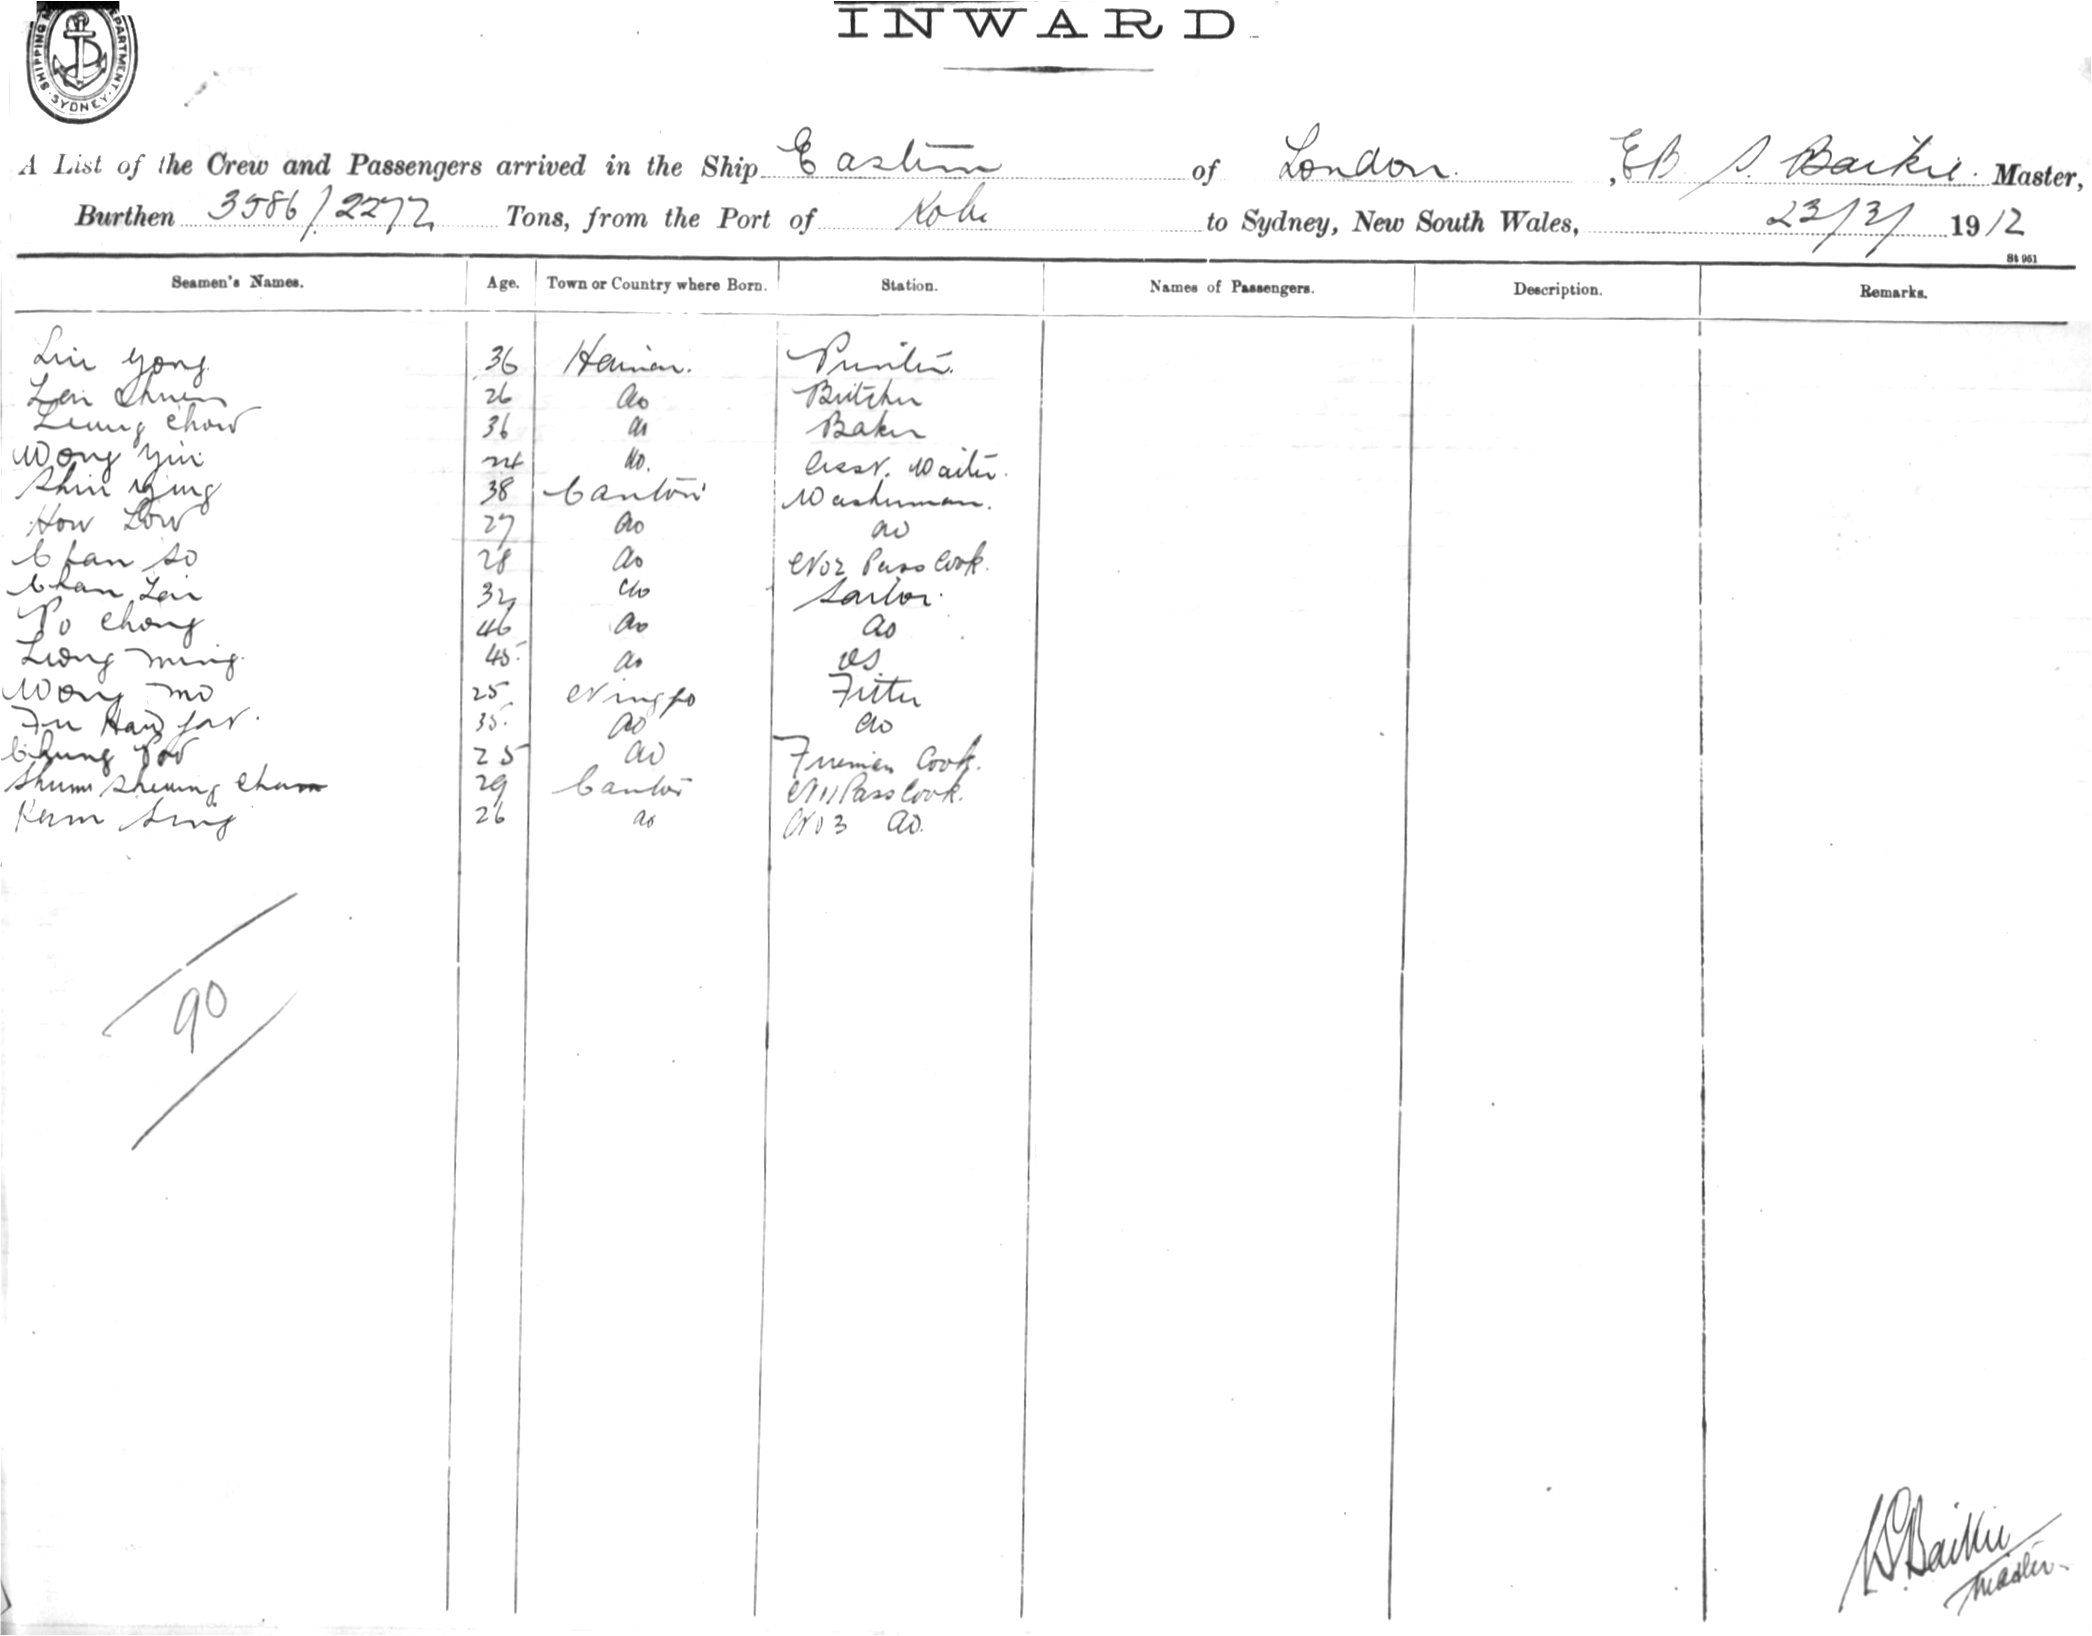 SHIPPING DEPARTMENT SYDNEY
INWARD
A List of the Crew and Passengers arrived in the Ship Eastern of London, EB S. Baikie. Master,
Burthen 3586/2272 Tons, from the Port of Kobe to Sydney, New South Wales, 23/3/ 1912
St 961
Seamen's Names. Age. Town or Country where Born. Station. Names of Passengers. Description. Remarks.
Yong 36 Hainan.
Shuen 26 do Butcher
Leung Chow 36 do Baker
Wong Yin 24 do. Asst. Waiter.
Shiu Yung 38 Canton Washerman.
How Low 27 do do
Chan So 28 do No 2 Pass Cook.
Chan 32 do Sailor.
Po Chong 46 do do
Leong Ming 45. do do
Wong Mo 25 Ningpo Fitter
35. do do
Chung 25 do Firemen Cook.
Shum Sheung Cham 29 Canton No 1 Pass Cook.
Kum Sing 26 do No 3 do.
90
Baikie
Master